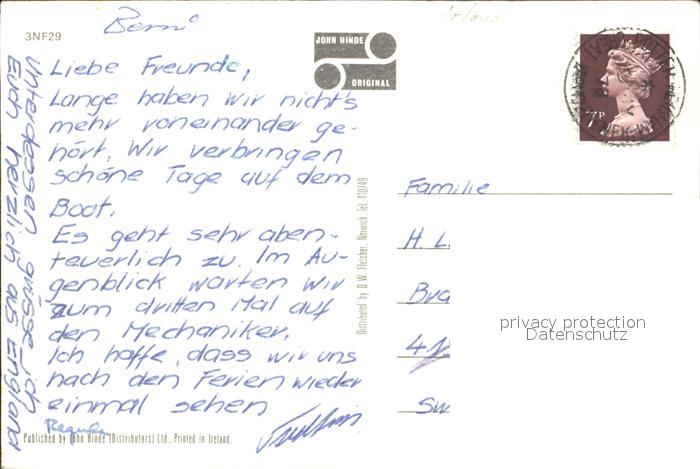 3NF29
Liebe Freunde,
Lange haben wir nichts
mehr voneinander ge-
hört. Wir verbringen
schöne Tage auf dem
Boot.
Es geht sehr aben-
teuerlich zu. Im Au-
genblick warten wir
zum dritten Mal auf
den Mechaniker.
Ich hoffe, dass wir uns
nach den Ferien wieder
einmal sehen
Unterdessen grüsse ich
Euch herzlich aus England
Published by John Hinde (Distributors) Ltd., Printed in Ireland.
JOHN HINDE
ORIGINAL
Distributed by D. W. Fletcher, Norwich. Tel. 410749
7P
Familie
H. L.
Bra
privacy protection
Datenschutz